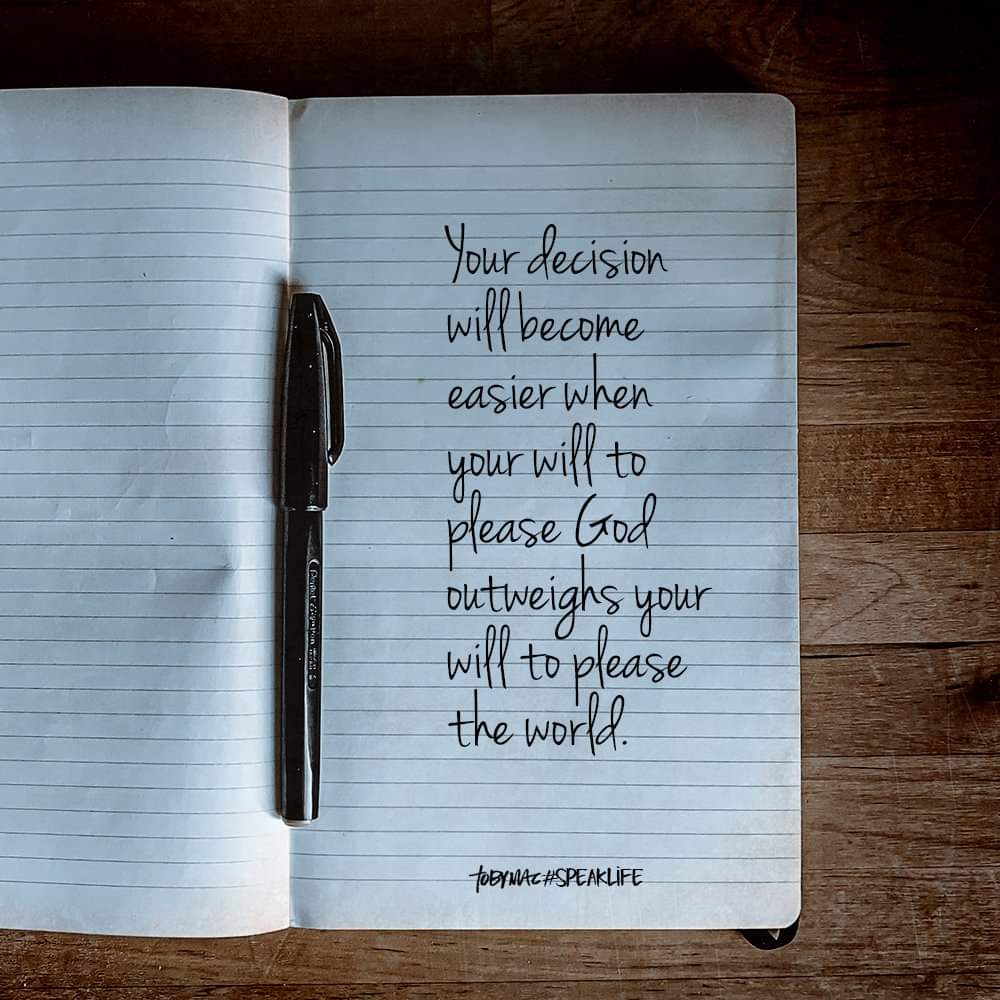 Your decision
will become
easier when
your will to
please God
outweighs your
will to please
the world.
TOBYMAC#SPEAKLIFE